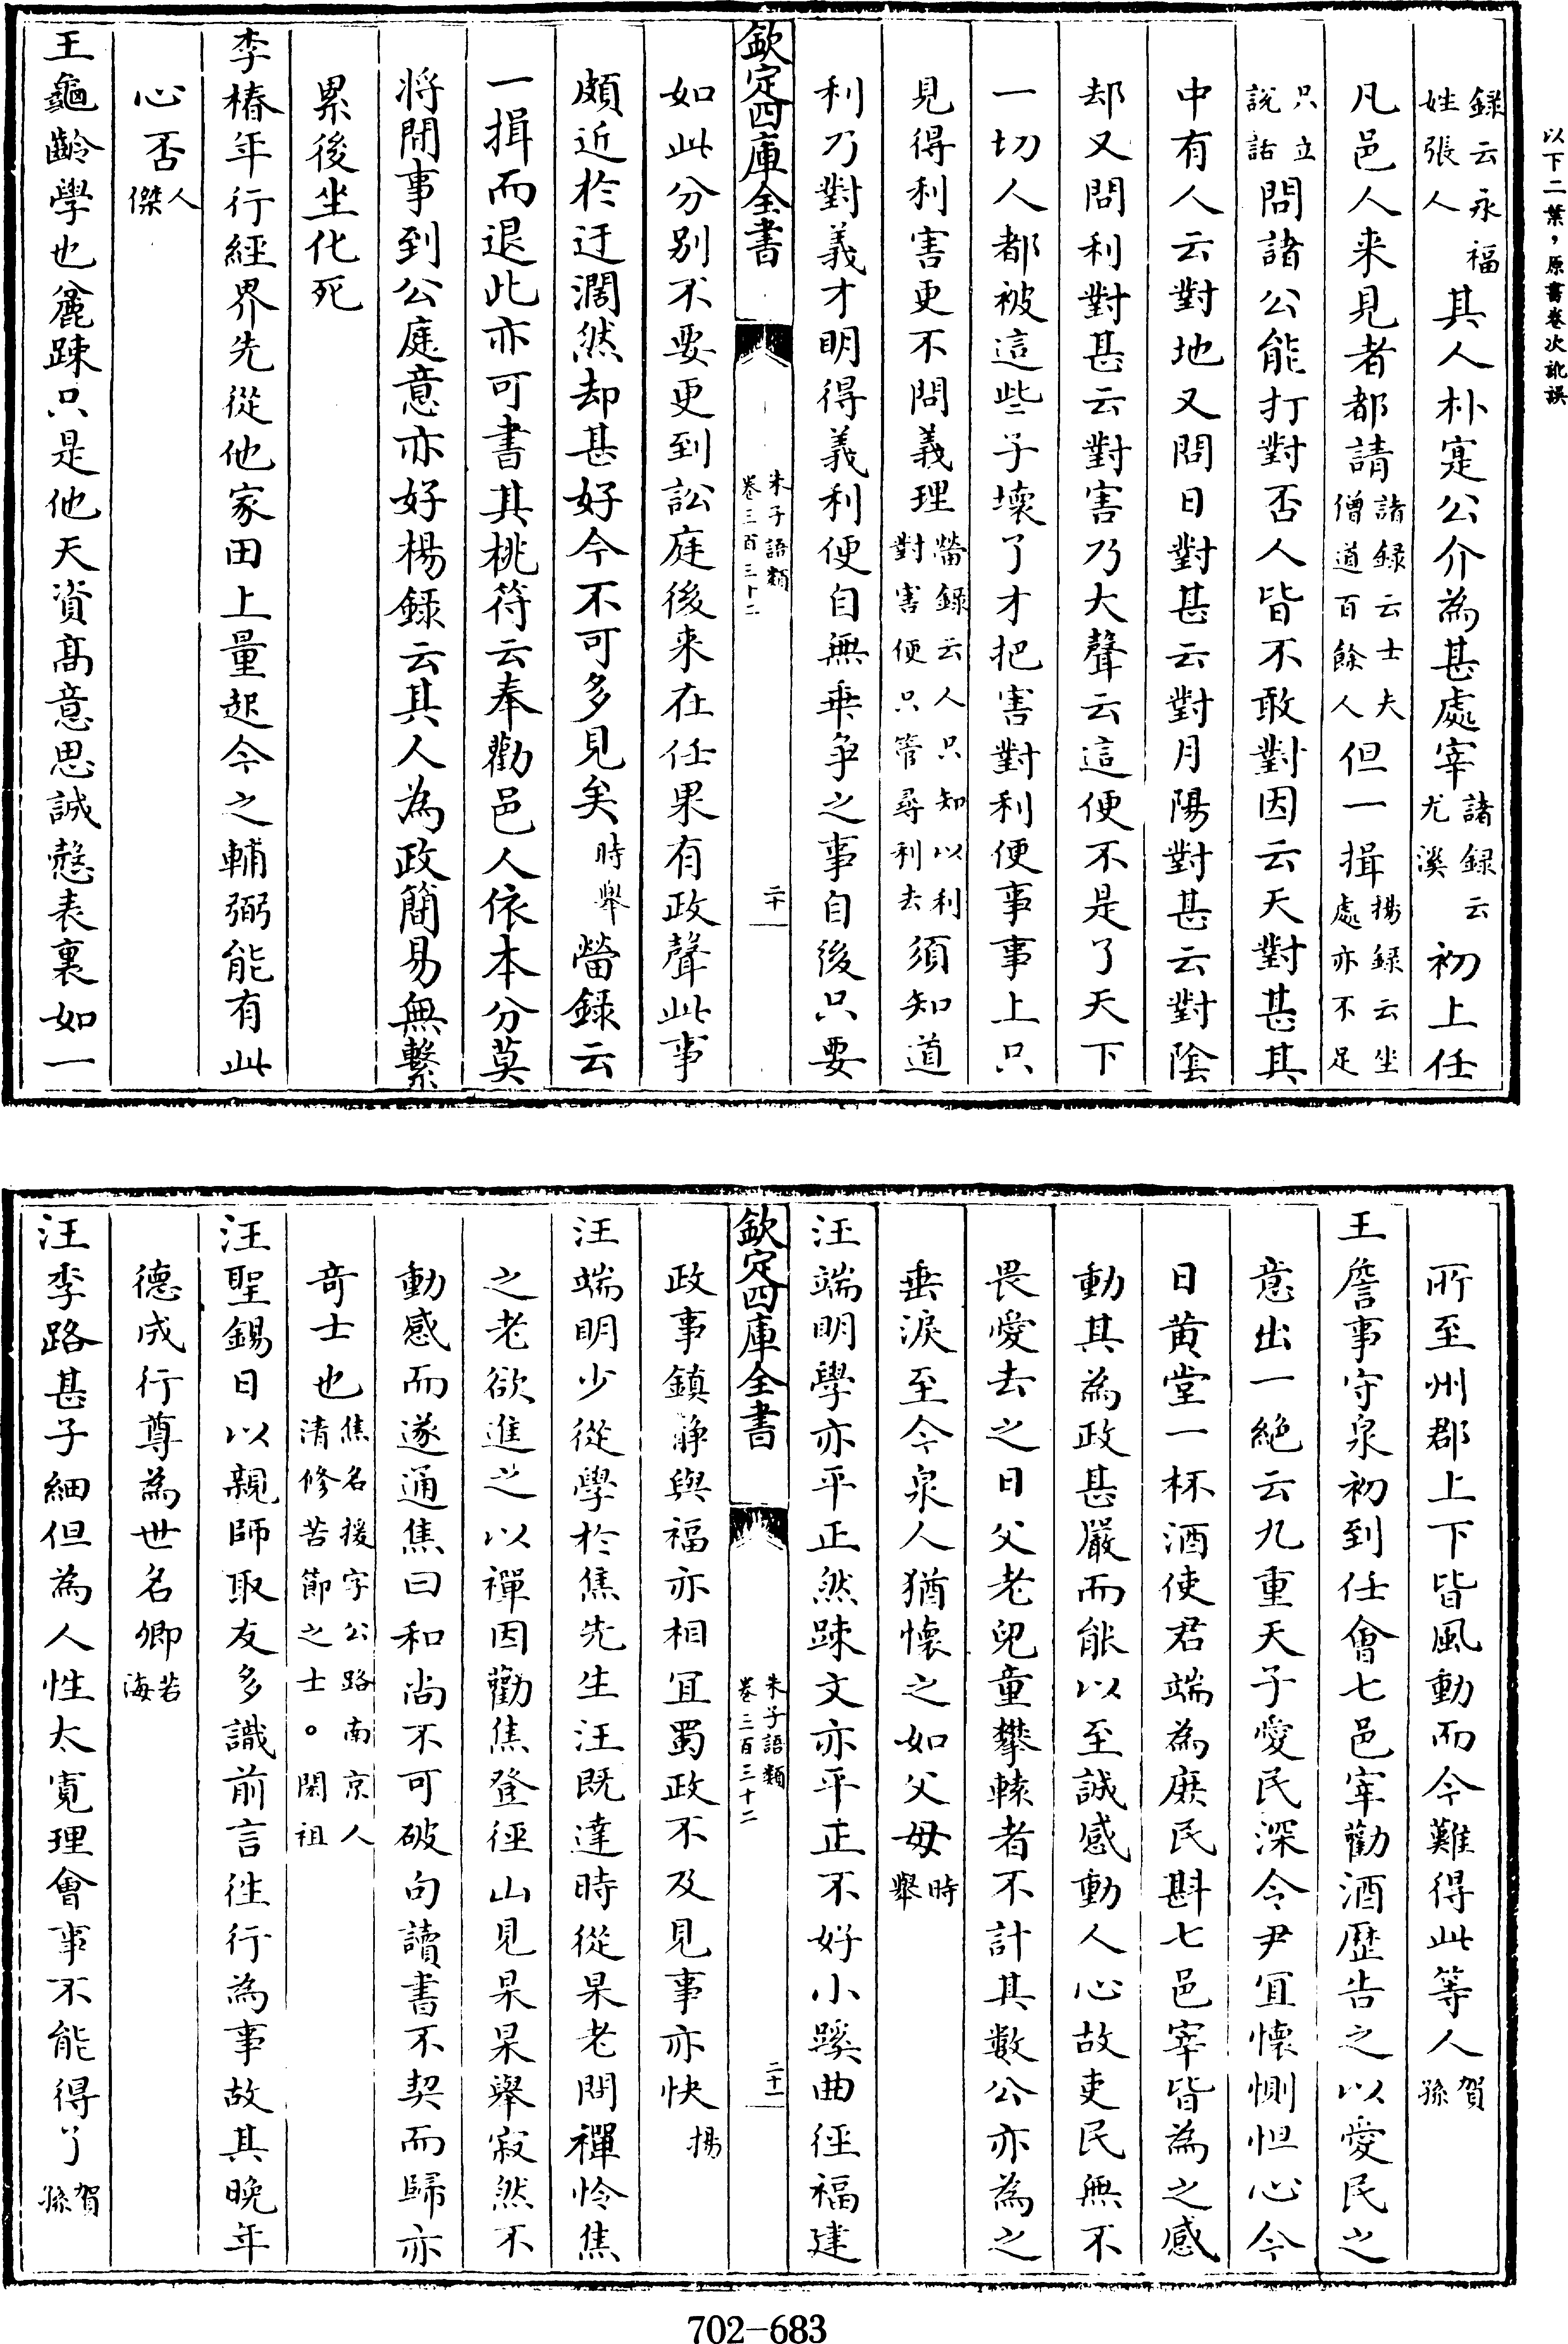 以下二葉，原書卷次訛誤
録云永福姓張人其人朴寔公介為甚處宰諸録云尤溪初上任
凡邑人来見者都請諸録云士夫僧道百餘人但一揖揚録云坐處亦不足
只立説話問諸公能打對否人皆不敢對因云天對甚其
中有人云對地又問日對甚云對月陽對甚云對陰
却又問利對甚云對害乃大聲云這便不是了天下
一切人都被這些子壞了才把害對利便事事上只
見得利害更不問義理㽦録云人只知以利對害便只管尋利去須知道
利乃對義才明得義利便自無乖争之事自後只要
欽定四庫全書
朱子語類
卷三百三十二
二十
如此分别不要更到訟庭後来在任果有政聲此事
頗近於迂濶然却甚好今不可多見矣時舉㽦録云
一揖而退此亦可書其桃符云奉勸邑人依本分莫
將閒事到公庭意亦好楊録云其人為政簡易無繫
累後坐化死
李椿年行經界先從他家田上量起今之輔弼能有此
心否人傑
王龜齡學也麄踈只是他天資髙意思誠慤表裏如一
所至州郡上下皆風動而今難得此等人賀孫
王詹事守泉初到任會七邑宰勸酒歴告之以愛民之
意出一絶云九重天子愛民深令尹宜懷惻怛心今
日黄堂一杯酒使君端為庶民斟七邑宰皆為之感
動其為政甚嚴而能以至誠感動人心故吏民無不
畏愛去之日父老兒童攀轅者不計其數公亦為之
垂淚至今泉人猶懷之如父母時舉
汪端明學亦平正然踈文亦平正不好小蹊曲徑福建
欽定四庫全書
朱子語類
卷三百三十二
二十一
政事鎮静與福亦相宜蜀政不及見事亦快揚
汪端明少從學於焦先生汪既達時從杲老問禪怜焦
之老欲進之以禪因勸焦登徑山見杲杲舉寂然不
動感而遂通焦曰和尚不可破句讀書不契而歸亦
奇士也焦名援字公路南京人清修苦節之士。閎祖
汪聖錫日以親師取友多識前言徃行為事故其晚年
德成行尊為世名卿若海
汪季路甚子細但為人性太寛理會事不能得了賀孫
702-683